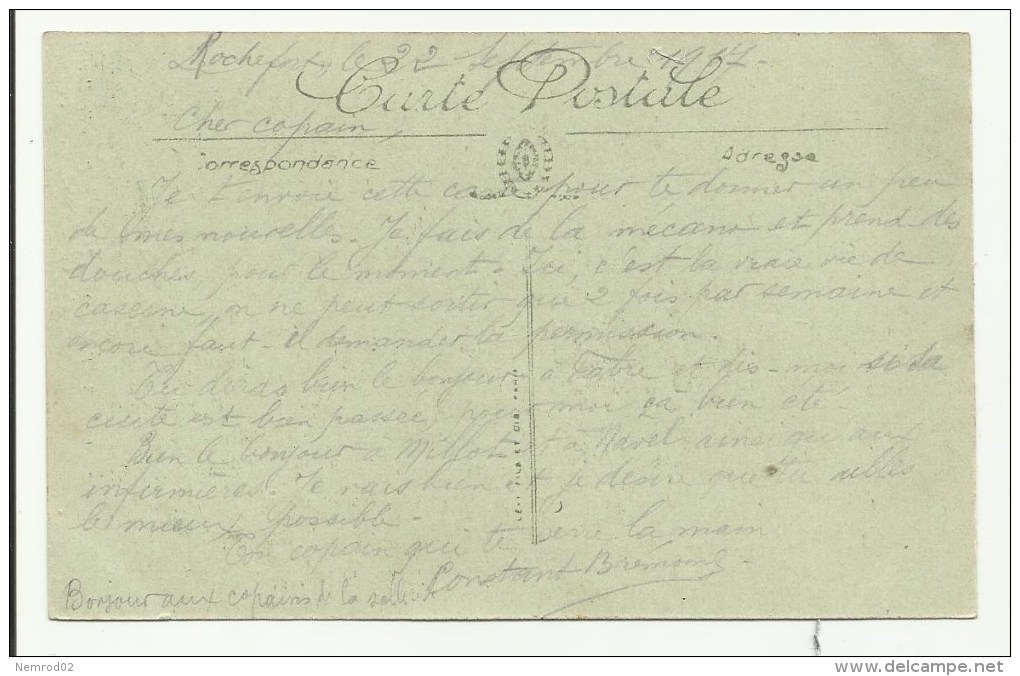 Rochefort, le 22 Septembre 1917.
Carte Postale
Cher copain,
Correspondance
Adresse
Je t'envoie cette carte pour te donner un peu
de mes nouvelles. Je fais de la mécano et prend des
douches, pour le moment. Ici, c'est la vraie vie de
caserne, on ne peut sortir que 2 fois par semaine et
encore faut-il demander la permission.
Tu diras bien le bonjour à Fabre et dis-moi si sa
cuite est bien passée, pour moi ça bien été
Bien le bonjour à Millot et à Ravel ainsi qu'aux
infirmières. Je vais bien et je désire que tu ailles
le mieux possible.
Ton copain qui te serre la main
Constant Brémond
Bonjour aux copains de la salle
FILS ET CIE. PARIS
Nemrod02
www.delcampe.net